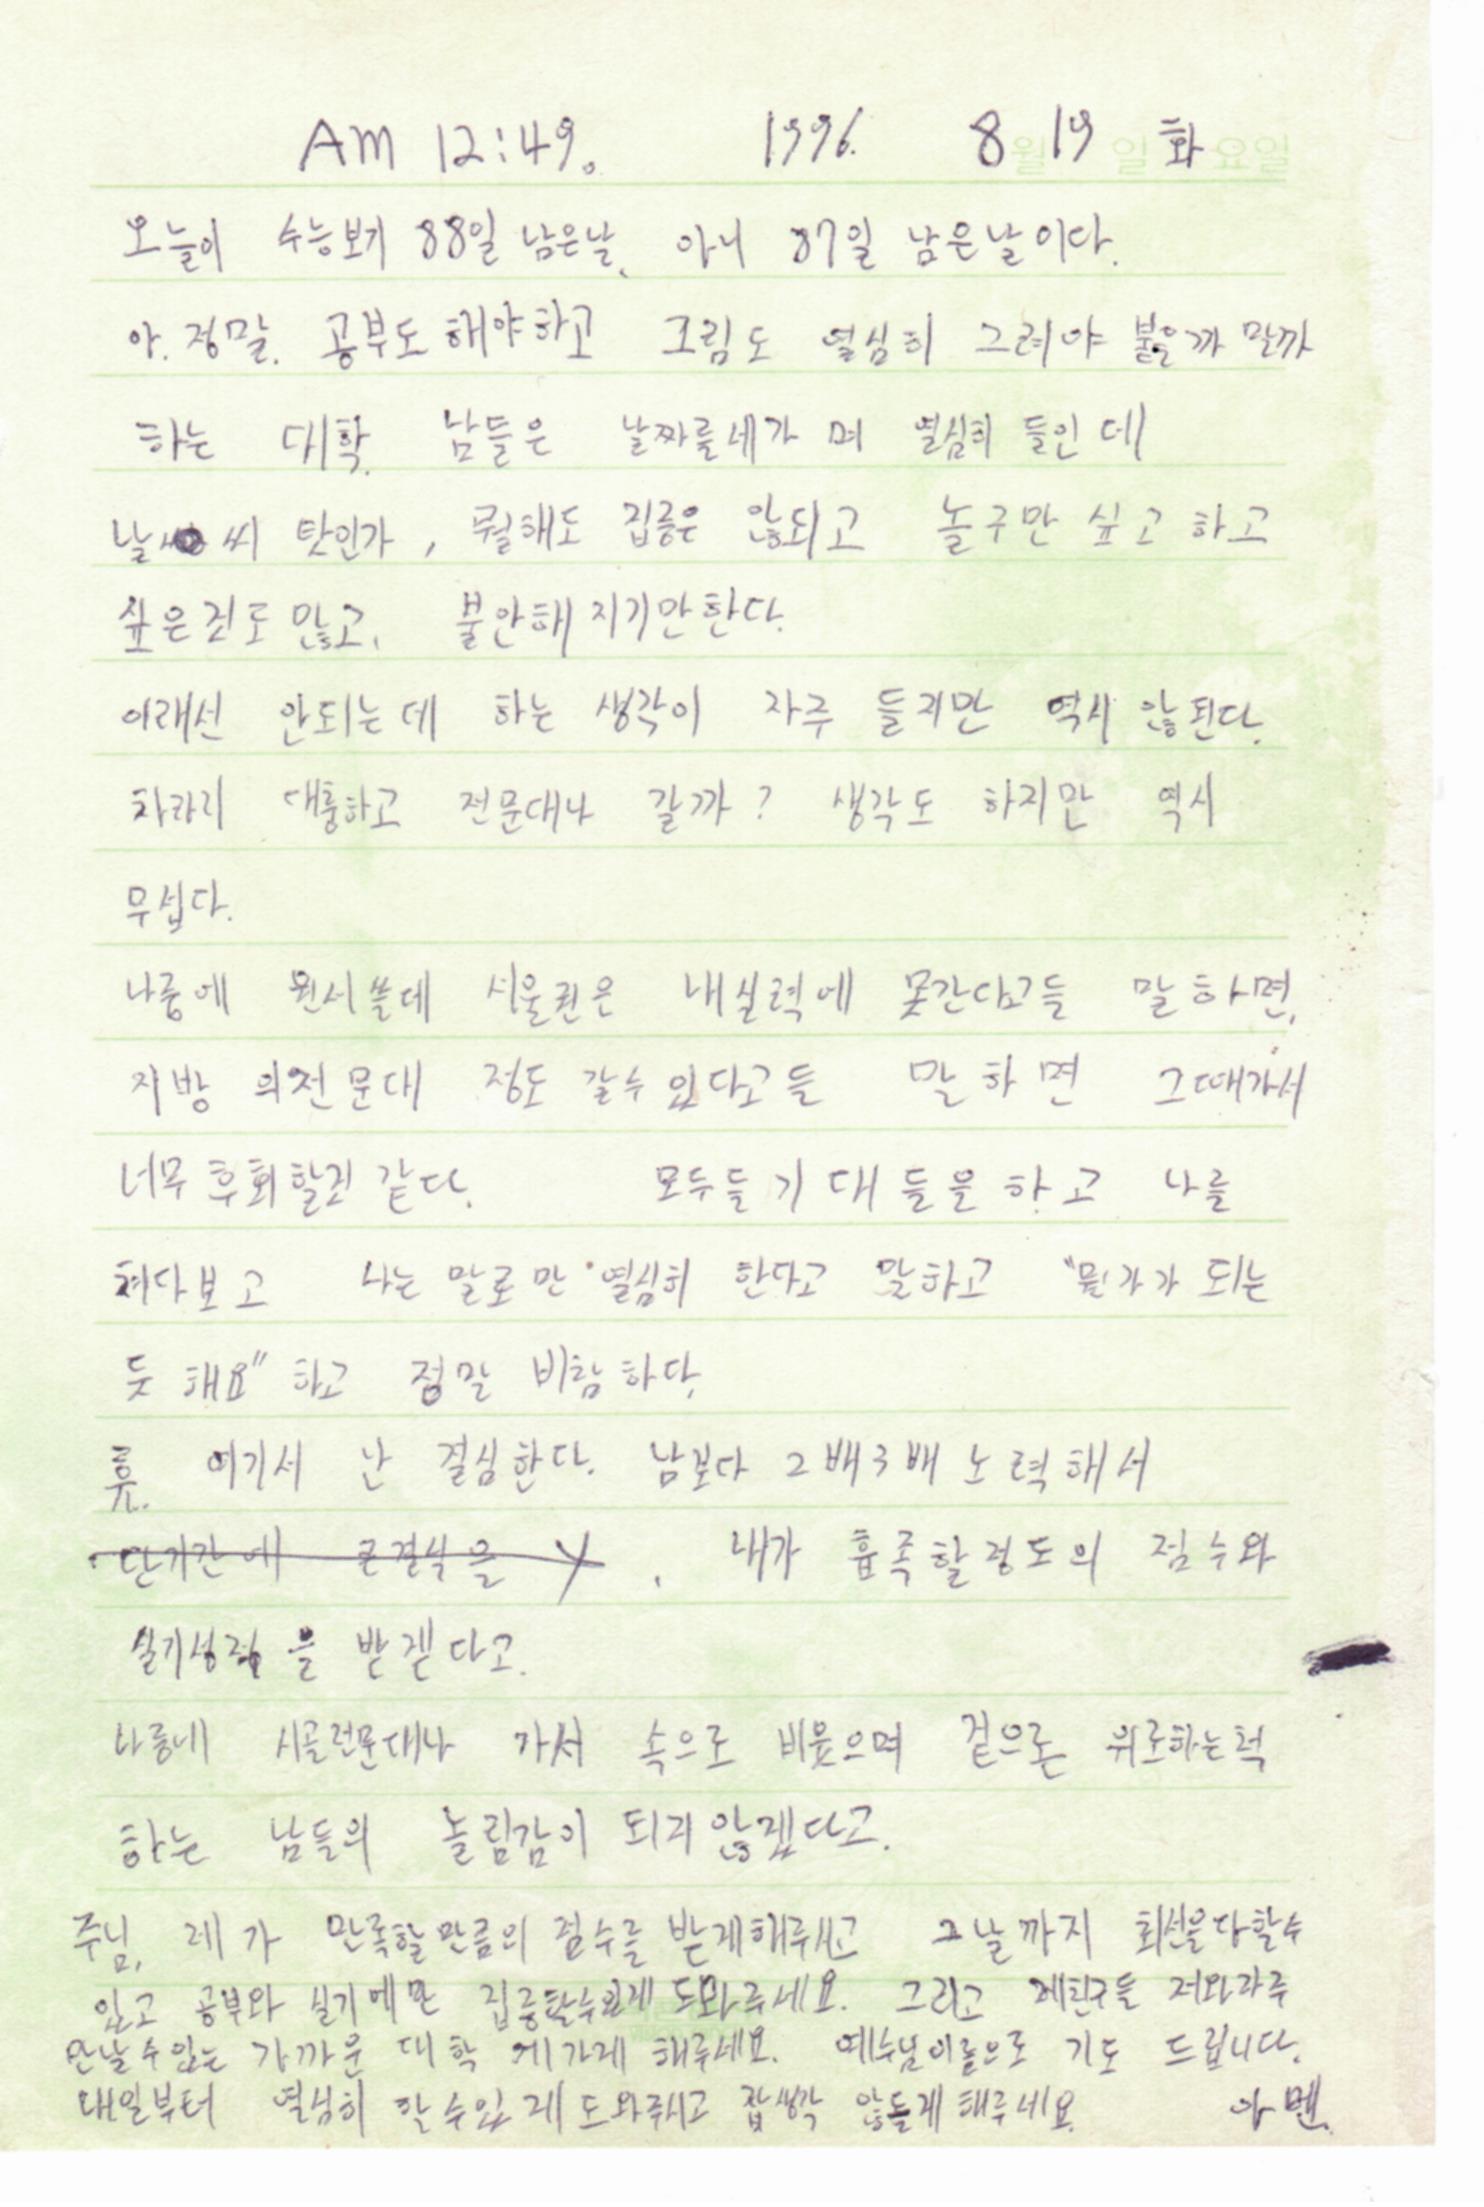 AM 12:49. 1996. 8월 19일 화요일
오늘이 수능보기 88일 남은날. 아니 87일 남은날이다.
아. 정말. 공부도 해야하고 그림도 열심히 그려야 붙을까 말까
하는 대학. 남들은 날짜를세가며 열심히 들인데
날씨 탓인가, 뭘해도 집중은 않되고 놀구만 싶고 하고
싶은것도 많고, 불안해 지기만한다.
이래선 안되는데 하는 생각이 자주 들지만 역시 않된다.
차라리 대충하고 전문대나 갈까? 생각도 하지만 역시
무섭다.
나중에 원서쓸데 서울권은 내실력에 못간다고들 말하면,
지방 의전문대 정도 갈수있다고들 말하면 그때가서
너무후회할것 같다. 모두들기대들을하고 나를
쳐다보고 나는 말로만 열심히 한다고 말하고 "뭔가가 되는
듯 해요" 하고 정말 비참하다.
휴. 여기서 난 결심한다. 남보다 2배3배 노력해서
단기간에 큰결식을 , 내가 흡족할정도의 점수와
실기성적을 받겓다고.
나중네 시골전문대나 가서 속으로 비웃으며 겉으론 위로하는척
하는 남들의 놀림감이 되지않겠다고.
주님, 제가 만족할만큼의 점수를 받게해주시고 그날까지 최선을다할수
있고 공부와 실기에만 집중할수있게 도와주세요. 그리고 제친구들 저와자주
만날수있는 가까운 대학에가게 해주세요. 예수님이름으로 기도 드립니다.
내일부터 열심히 할수있게도와주시고 잡생각 않들게해주세요 아멘.